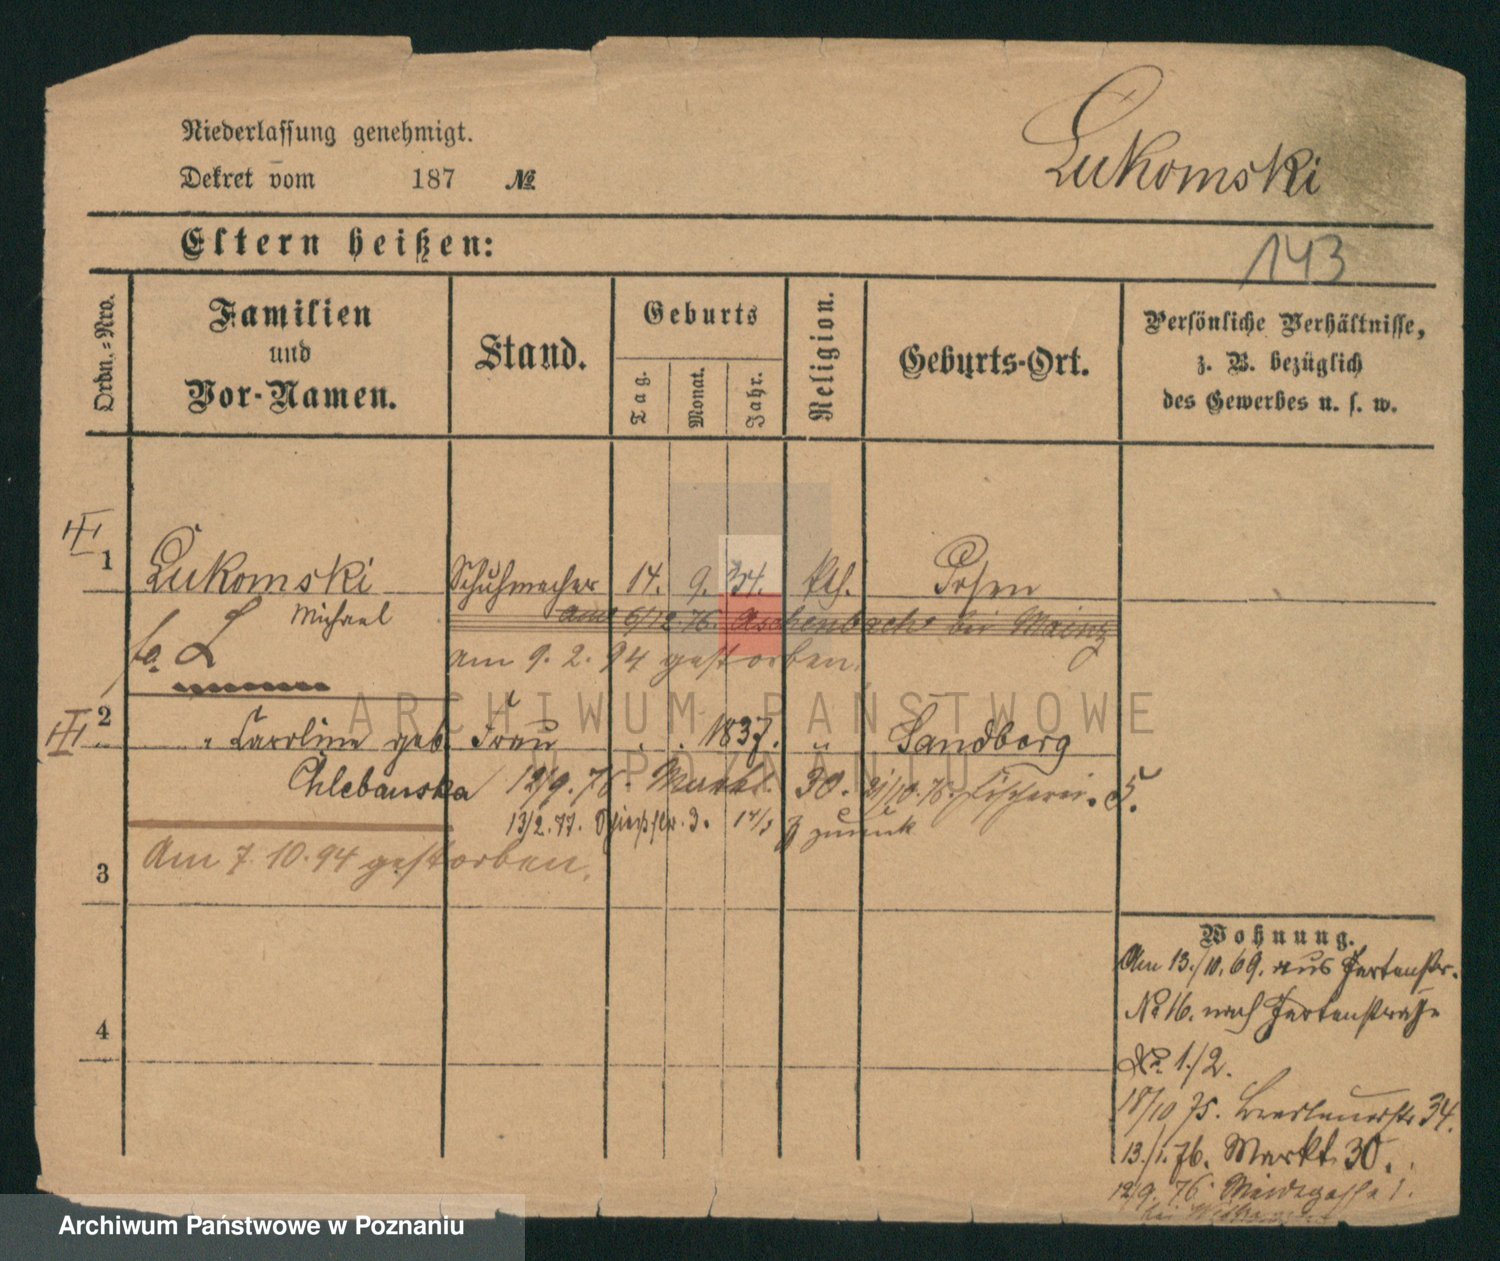 Niederlassung genehmigt.
Dekret vom 187 №
Łukomski
143
Eltern heißen:
Ordn.=Nro.
Familien
und
Vor-Namen.
Stand.
Geburts
Tag.
Monat.
Jahr.
Religion.
Geburts-Ort.
Persönliche Verhältnisse,
z. B. bezüglich
des Gewerbes u. s. w.
III
1 Łukomski Schuhmacher 14. 9. 34. kth. Posen
Michael
am 6/12 76. Aschenbach bei Mainz
am 9. 2. 94 gestorben.
2
III
" Caroline geb. Frau . . 1837. " Sandberg
Chlebanska 12/9. 76. Markt 30. 21/10. 76. Fischerei. 5.
13/2. 77. 3. 17/3 zurück
Am 7. 10. 94 gestorben.
3
4
Wohnung.
Am 13./10. 69. aus Gartenstr.
№ 16. nach Gartenstraße
№ 1./2.
18/10 75. Breslauerstr 34.
13./1. 76. Markt 30.
12/9. 76. 1.
bei
ARCHIWUM PAŃSTWOWE
W POZNANIU
Archiwum Państwowe w Poznaniu